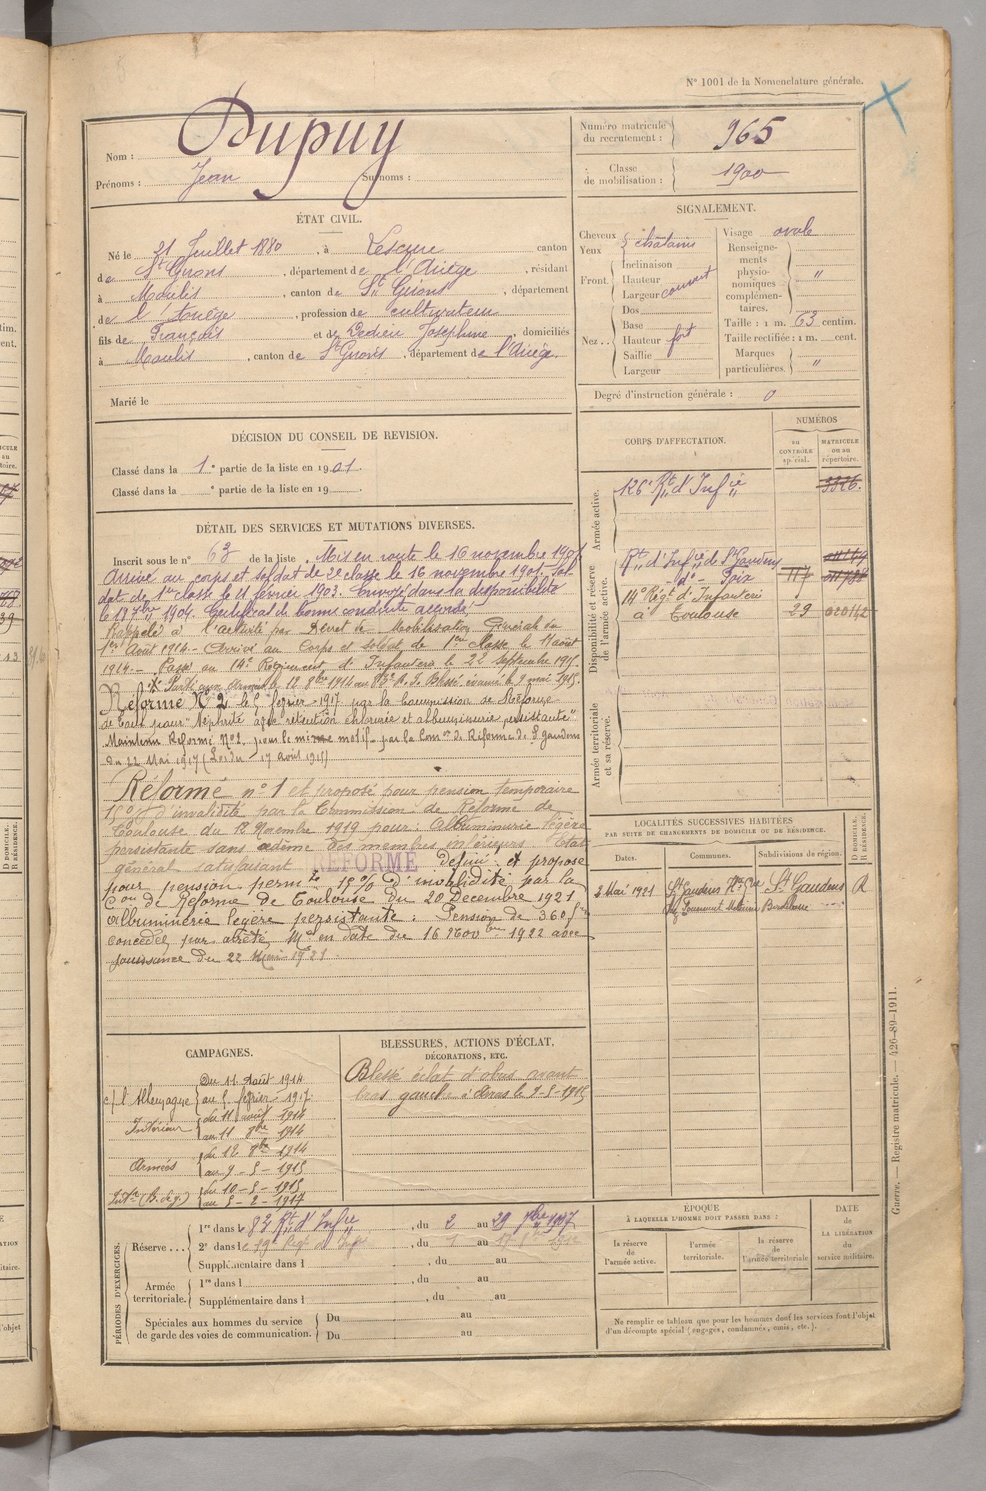 N° 1001 de la Nomenclature générale.
Nom : Dupuy
Prénoms : Jean Surnoms :
Numéro matricule du recrutement : 965
Classe de mobilisation : 1900
ÉTAT CIVIL.
Né le 21 Juillet 1880, à Lescure canton
de St Girons, département de l'Ariège, résidant
à Moulis, canton de St Girons, département
de l'Ariège, profession de cultivateur
fils de François et de Dedieu Joséphine, domiciliés
à Moulis, canton de St Girons, département de l'Ariège.
Marié le
SIGNALEMENT.
Cheveux
Yeux } châtains
Front. { Inclinaison
Hauteur
Largeur couvert
Nez.. { Dos
Base
Hauteur fort
Saillie
Largeur
Visage ovale
Renseignements physionomiques complémentaires. } "
Taille : 1 m. 63 centim.
Taille rectifiée : 1 m. cent.
Marques particulières. } "
Degré d'instruction générale : 0
DÉCISION DU CONSEIL DE REVISION.
Classé dans la 1e partie de la liste en 1901.
Classé dans la e partie de la liste en 19
DÉTAIL DES SERVICES ET MUTATIONS DIVERSES.
Inscrit sous le n° 63 de la liste. Mis en route le 16 novembre 1901
Arrivé au corps et soldat de 2e classe le 16 novembre 1901. Sol-
dat de 1re classe le 11 février 1903. Envoyé dans la disponibilité
le 7bre 1904. Certificat de bonne conduite accordé.
Rappelé à l'activité par Décret de Mobilisation Générale du
1er Août 1914 - Arrivé au Corps et soldat de 1ere Classe le 11 août
1914. - Passé au 14e Régiment d'Infanterie le 22 septembre 1915.
Parti aux Armées le 12 8bre 1914 au 83e R. I. Blessé évacué le 9 mai 1915.
Réformé N° 2 le 5 février 1917 par la Commission de Réforme
de pour "Néphrite avec rétention chlorurée et albuminurie persistante"
Maintenu Réformé N° 2 pour le même motif par la Com on de Réforme de St gaudens
du 22 Mai 1917 (Loi du 17 Août 1915)
Réformé n° 1 et proposé pour pension temporaire
15% d'invalidité par la Commission de Réforme de
Toulouse du 12 Novembre 1919 pour : Albuminurie légère
persistante sans œdème des membres inférieurs Etat
général satisfaisant RÉFORMÉ Définif et proposé
pour pension permte 15% d'invalidité par la
Con de Réforme de Toulouse du 20 Décembre 1921
albuminerie légère persistante : Pension de 360 f
concédée par arrêté Mel en date du 16 Novembre 1922 avec
jouissance du 22 Mai 1921.
CORPS D'AFFECTATION.
NUMÉROS
au CONTRÔLE spécial.
MATRICULE ou au répertoire.
Armée active.
126e Rgt d'Infie 3326.
Disponibilité et réserve de l'armée active.
Rgt d'Infie de St Gaudens
- do - Foix 117
14e Régt d'Infanterie
à Toulouse 29
Armée territoriale et sa réserve.
LOCALITÉS SUCCESSIVES HABITÉES
PAR SUITE DE CHANGEMENTS DE DOMICILE OU DE RÉSIDENCE.
Dates. Communes. Subdivisions de région. D DOMICILE. R RÉSIDENCE.
2 Mai 1921 St Gaudens Hte Gne St Gaudens R
CAMPAGNES.
c/ l'Allemagne { Du 11 Août 1914
au 5 février 1917
Intérieur { du 11 août 1914
au 11 8bre 1914
Armées { du 12 8bre 1914
au 9 - 5 - 1915
Intr (B. de g.) { du 10 - 5 - 1915
au 5 - 2 - 1917
BLESSURES, ACTIONS D'ÉCLAT, DÉCORATIONS, ETC.
Blessé éclat d'obus avant
bras gauche à Arras le 9-5-1915
PÉRIODES D'EXERCICES.
Réserve... { 1re dans le 83 Rgt d'Infie, du 2 au 29 8bre 1907
2e dans le 59e Regt d'Infie, du 1 au 17 1912
Supplémentaire dans l, du au
Armée territoriale. { 1re dans l, du au
Supplémentaire dans l, du au
Spéciales aux hommes du service de garde des voies de communication. { Du au
Du au
ÉPOQUE
À LAQUELLE L'HOMME DOIT PASSER DANS :
la réserve de l'armée active.
l'armée territoriale.
la réserve de l'armée territoriale
DATE de LA LIBÉRATION du service militaire.
Ne remplir ce tableau que pour les hommes dont les services font l'objet
d'un décompte spécial (engagés, condamnés, omis, etc.).
Guerre. — Registre matricule. — 426-89-1911.